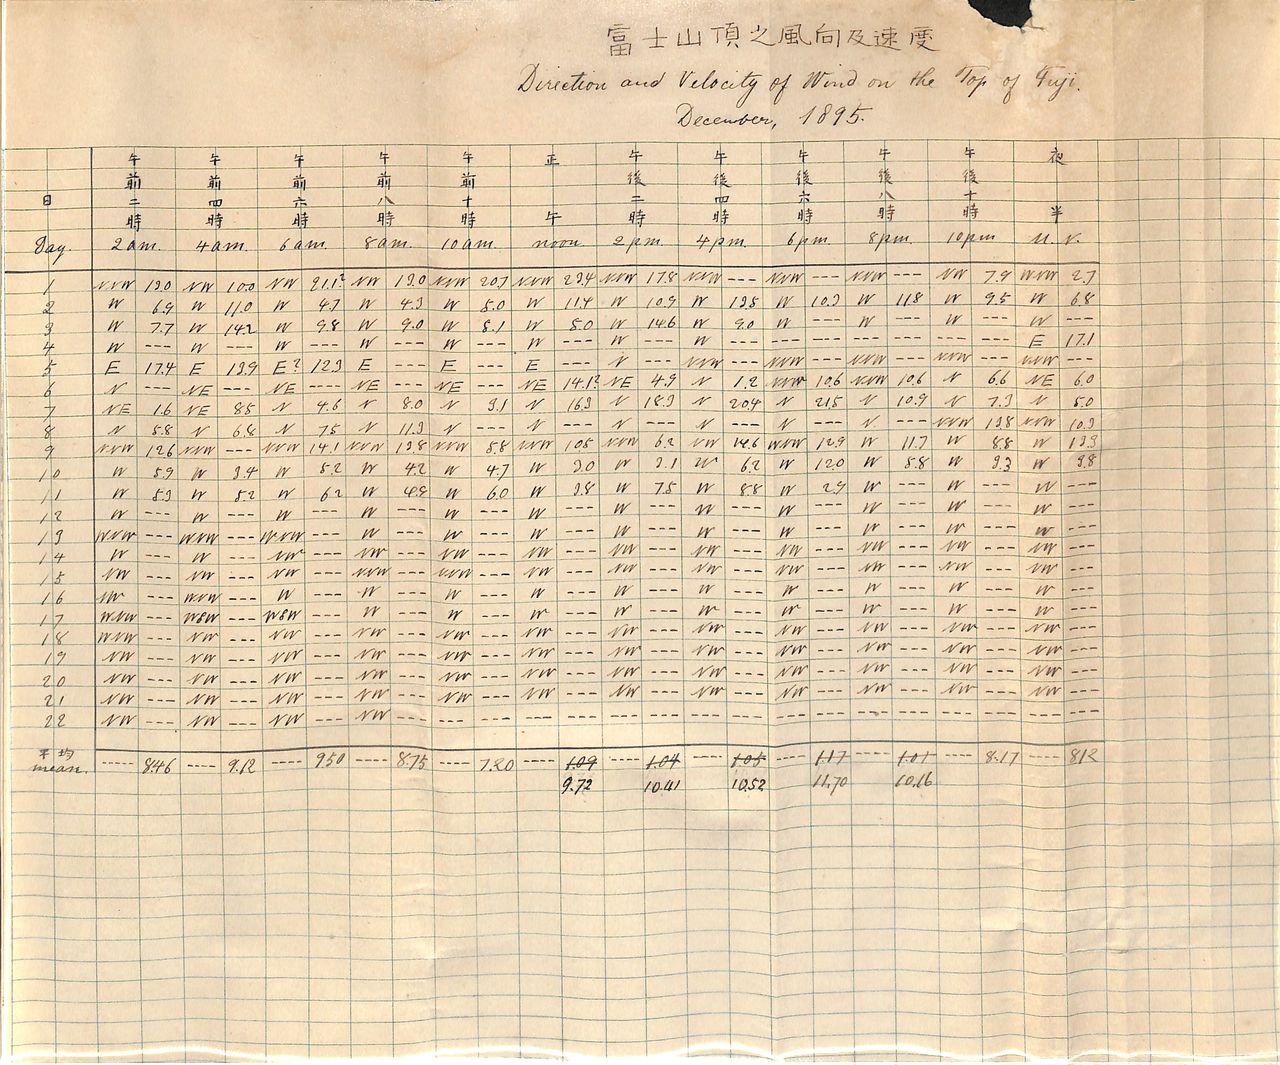 富士山頂之風向及速度
Direction and Velocity of Wind on the Top of Fuji.
December, 1895.
日 午前二時 午前四時 午前六時 午前八時 午前十時 正午 午後二時 午後四時 午後六時 午後八時 午後十時 夜半
Day. 2 am. 4 am. 6 am. 8 am. 10 am. noon. 2 pm. 4 pm. 6 pm. 8 pm. 10 pm M. N.
1 NNW 13.0 NW 10.0 NW NW 13.0 NNW 20.7 NNW 23.4 NNW 17.8 NNW --- NNW --- NNW --- NW 7.9 WNW 2.7
2 W 6.9 W 11.0 W 4.7 W 4.3 W 5.0 W 11.4 W 10.9 W 13.5 W 10.3 W 11.8 W 9.5 W 6.8
3 W 7.7 W 14.2 W 9.8 W 9.0 W 8.1 W 5.0 W 14.6 W 9.0 W --- W --- W --- W ---
4 W --- W --- W --- W --- W --- W --- W --- W --- --- --- --- --- --- --- E 17.1
5 E 17.4 E 13.9 E? 12.3 E --- E --- E --- N --- NNW --- NNW --- NNW --- NNW --- NNW ---
6 N --- NE --- NE --- NE --- NE --- NE 14.1? NE 4.9 N 1.2 NNW 10.6 NNW 10.6 N 6.6 NE 6.0
7 NE 1.6 NE 8.5 N 4.6 N 8.0 N 3.1 N 16.3 N 18.3 N 20.4 N 21.5 N 10.9 N 7.3 N 5.0
8 N 5.8 N 6.8 N 7.5 N 11.3 N --- N --- N --- N --- N --- N --- NNW 13.8 NNW 10.3
9 NNW 12.6 NNW --- NNW 14.1 NNW 13.8 NNW 5.8 NNW 10.5 NNW 6.2 NW 14.6 WNW 12.9 W 11.7 W 8.8 W 13.3
10 W 5.9 W 3.4 W 5.2 W 4.2 W 4.7 W 3.0 W 3.1 W 6.2 W 12.0 W 5.8 W 3.3 W 3.8
11 W 5.3 W 8.2 W 6.2 W 4.8 W 6.0 W 3.8 W 7.5 W 8.8 W 2.9 W --- W --- W ---
12 W --- W --- W --- W --- W --- W --- W --- W --- W --- W --- W --- W ---
13 WNW --- WNW --- WNW --- W --- W --- W --- W --- W --- W --- W --- W --- W ---
14 W --- W --- NW --- NW --- NW --- NW --- NW --- NW --- NW --- NW --- NW --- NW ---
15 NW --- NW --- NW --- NNW --- NNW --- NW --- NW --- NW --- NW --- NW --- NW --- NW ---
16 --- WNW --- W --- W --- W --- W --- W --- W --- W --- W --- W --- W ---
17 WNW --- WSW --- WSW --- W --- W --- W --- W --- W --- W --- W --- W --- W ---
18 WNW --- NW --- NW --- NW --- NW --- NW --- NW --- NW --- NW --- NW --- NW --- NW ---
19 NW --- NW --- NW --- NW --- NW --- NW --- NW --- NW --- NW --- NW --- NW --- NW ---
20 NW --- NW --- NW --- NW --- NW --- NW --- NW --- NW --- NW --- NW --- NW --- NW ---
21 NW --- NW --- NW --- NW --- NW --- NW --- NW --- NW --- NW --- NW --- NW --- NW ---
22 NW --- NW --- NW --- NW --- --- --- --- --- --- --- --- --- --- --- --- --- --- --- --- ---
平均
mean. ---- 8.46 ---- 9.12 ---- 9.50 ---- 8.75 ---- 7.20 ---- 1.09 ---- 1.04 ---- 1.05 ---- 1.17 ---- 1.01 ---- 8.17 ---- 8.12
9.72 10.41 10.52 11.70 10.16